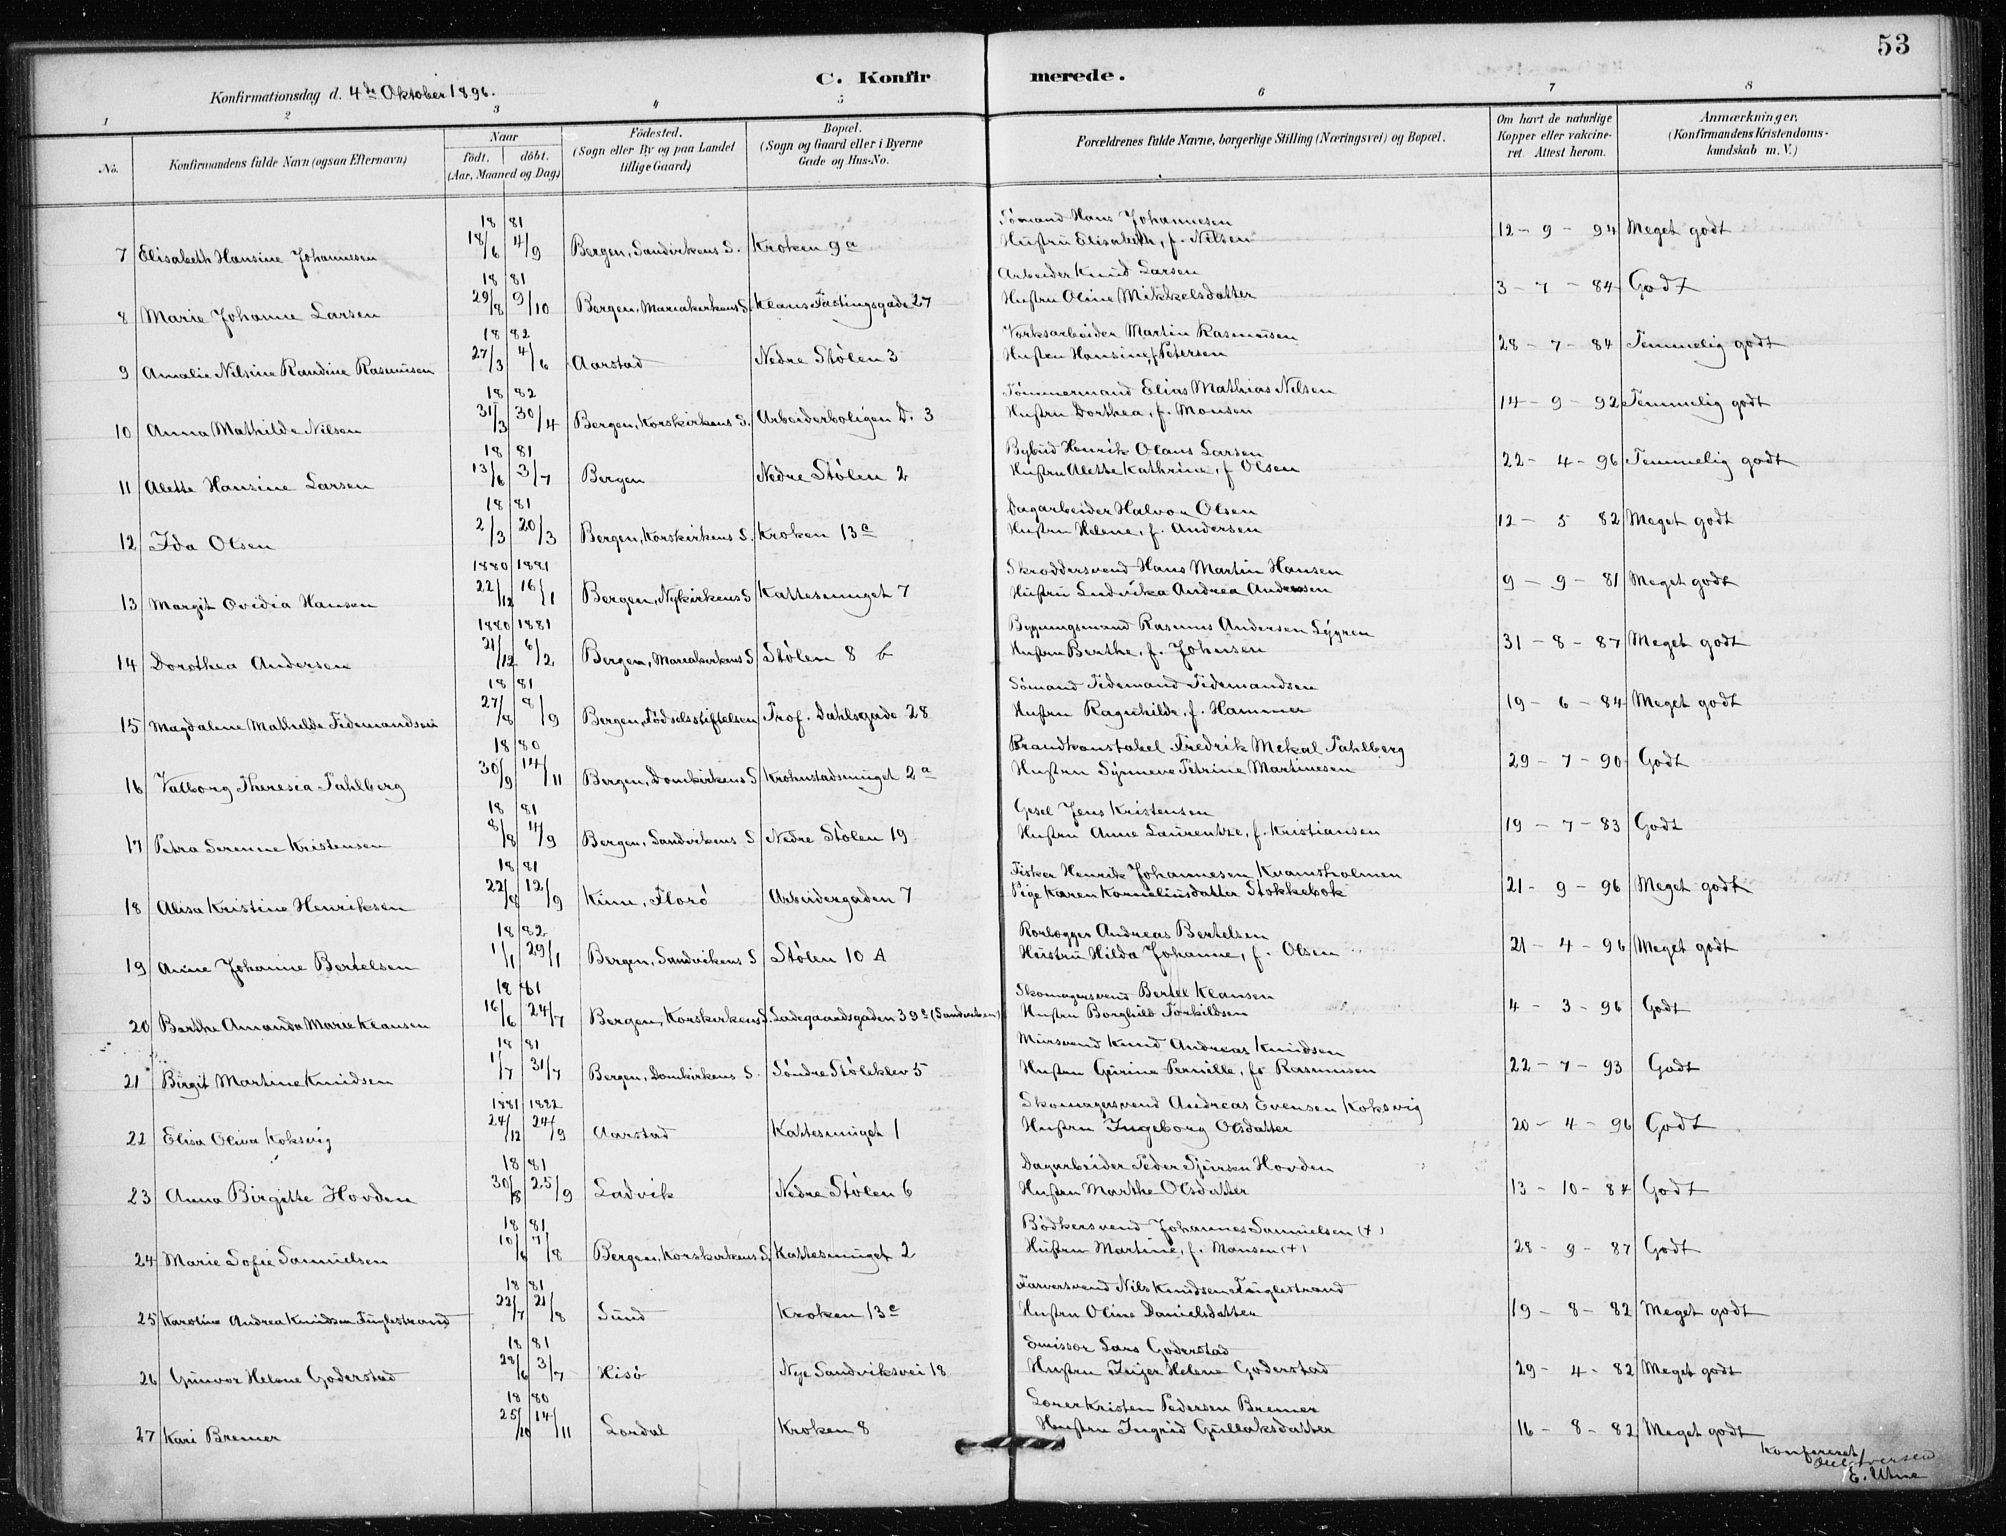 53
C. Konfirmerede.
Konfirmationsdag d. 4de Oktober 1896.
1 2 3 4 5 6 7 8
No. Konfirmandens fulde Navn (ogsaa Efternavn) Naar födt. döbt. (Aar, Maaned og Dag) Födested. (Sogn eller By og paa Landet tillige Gaard) Bopæl. (Sogn og Gaard eller i Byerne Gade og Hus-No. Forældrenes fulde Navne, borgerlige Stilling (Næringsvei) og Bopæl. Om havt de naturlige Kopper eller vakcineret. Attest herom. Anmærkninger, (Konfirmandens Kristendomskundskab m. V.)
7 Elisabeth Hansine Johannesen 1881 18/6 4/9 Bergen, Sandvikens S. Kroken 9a Sömand Hans Johannesen Hustru Elisabeth, f. Nilsen 12 - 9 - 94 Meget godt
8 Marie Johanne Larsen 1881 29/8 9/10 Bergen, Mariakirkens S. Klaus Fastingsgade 27 Arbeider Knud Larsen Hustru Oline Mikkelsdatter 3 - 7 - 84 Godt
9 Amalie Nilsine Randine Rasmusen 1882 27/3 4/6 Aarstad Nedre Stölen 3 Verksarbeider Martin Rasmusen Hustru Hansine, f. Petersen 28 - 7 - 84 Temmelig godt
10 Anna Mathilde Nilsen 1882 31/3 30/4 Bergen, Korskirkens S. Arbeiderboligen D. 3 Tömmermand Elias Mathias Nilsen Hustru Dorthea, f. Monsen 14 - 9 - 92 Temmelig godt
11 Alette Hansine Larsen 1881 13/6 3/7 Bergen Nedre Stölen 2 Bybud Henrik Olaus Larsen Hustru Alette Kathrine, f Olsen 22 - 4 - 96 Temmelig godt
12 Ida Olsen 1881 2/3 20/3 Bergen, Korskirkens S. Kroken 13a Dagarbeider Halvor Olsen Hustru Helene, f. Andersen 12 - 5 82 Meget godt
13 Margit Ovidia Hansen 1880 1881 22/12 16/1 Bergen, Nykirkens S Kattesmuget 7 Skræddersvend Hans Martin Hansen Hustru Ludvika Andrea Andresen 9 - 9 - 81 Meget godt
14 Dorothea Andersen 1880 1881 21/12 6/2 Bergen, Mariakirkens S Stölen 8 b Bygningsmand Rasmus Andersen Lygren Hustru Berthe, f. Johnsen 31 - 8 - 87 Meget godt
15 Magdalene Mathilde Tidemandsen 1881 27/8 8/9 Bergen, Födselsstiftelsen Prof. Dahlsgade 28 Sömand Tidemand Tidemandsen Hustru Ragnhilde, f. Hammer 19 - 6 - 84 Meget godt
16 Valborg Theresia Pahlberg 1880 30/9 14/11 Bergen, Domkirkens S Krohnstadsmuget 2a Brandkonstabel Fredrik Mekal Pahlberg Hustru Synneve Petrine Martinesen 29 - 7 - 90 Godt
17 Petra Serenne Kristensen 1881 8/8 14/9 Bergen, Sandvikens S Nedre Stölen 19 Gesel Jens Kristensen Hustru Anne Laurentze, f. Kristiansen 19 - 7 - 83 Godt
18 Alisa Kristine Henriksen 1881 22/8 12/9 Kinn, Florö Arbeidergaden 7 Fisker Henrik Johannesen Kvamsholmen Pige Karen Korneliusdatter Stokkebok 21 - 9 - 96 Meget godt
19 Anne Johanne Bertelsen 1882 1/1 29/1 Bergen, Sandvikens S Stölen 10 A Rorlægger Andreas Bertelsen Hustru Hilda Johanne, f. Olsen 21 - 4 - 96 Meget godt
20 Berthe Amanda Marie Klausen 1881 16/6 24/7 Bergen, Korskirkens S. Ladegaardsgaden 39c (Sandviken) Skomagersvend Bertel Klausen Hustru Borghild Torkildsen 4 - 3 - 96 Godt
21 Birgit Martine Knudsen 1881 1/7 31/7 Bergen, Domkirkens S. Söndre Stöleklev 5 Mursvend Knud Andreas Knudsen Hustru Gurine Pernille, f. Rasmusen 22 - 7 - 93 Godt
22 Elisa Oliva Koksvig 1881 1882 24/12 24/9 Aarstad Kattesmuget 1 Skomagersvend Andreas Evensen Koksvig Hustru Ingeborg Olsdatter 20 - 4 - 96 Godt
23 Anna Birgitte Hovden 1881 30/8 25/9 Ladvik Nedre Stölen 6 Dagarbeider Peder Sjursen Hovden Hustru Marthe Olsdatter 13 - 10 - 84 Godt
24 Marie Sofie Samuelsen 1881 10/6 7/8 Bergen, Korskirkens S. Kattesmuget 2 Bödkersvend Johannes Samuelsen (+) Hustru Martine, f. Mansen (+) 28 - 9 - 87 Godt
25 Karoline Andrea Knudsen Fuglestrand 1881 22/7 21/8 Sund Kroken 13e Farversvend Nils Knudsen Fuglestrand Hustru Oline Danielsdatter 19 - 8 - 82 Meget godt
26 Gunvor Helene Goderstad 1881 28/6 3/7 Hisö Nye Sandviksvei 18 Emissær Lars Goderstad Hustru Inger Helene Goderstad 29 - 4 - 82 Meget godt
27 Kari Bremer 1880 25/10 14/11 Lærdal Kroken 8 Lærer Kristen Pedersen Bremer Hustru Ingrid Gullaksdatter 16 - 8 - 82 Meget godt
Konfereret
E. Utne